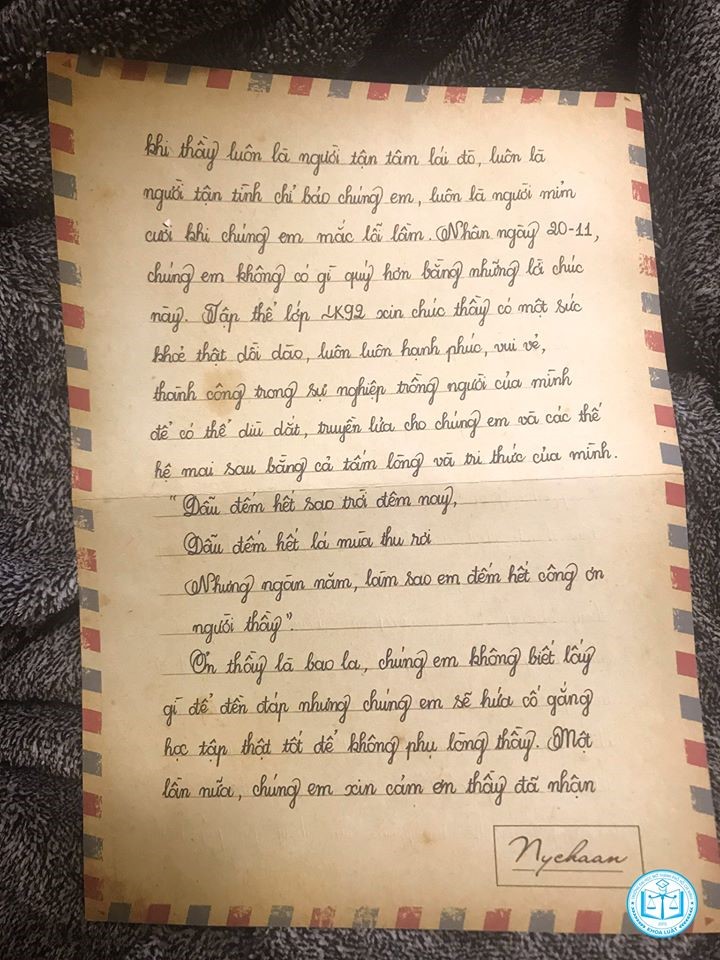 khi thầy luôn là người tận tâm lái đò, luôn là
người tận tình chỉ bảo chúng em, luôn là người mỉm
cười khi chúng em mắc lỗi lầm. Nhân ngày 20-11,
chúng em không có gì quý hơn bằng những lời chúc
này. Tập thể lớp LK92 xin chúc thầy có một sức
khoẻ thật dồi dào, luôn luôn hạnh phúc, vui vẻ,
thành công trong sự nghiệp trồng người của mình
để có thể dìu dắt, truyền lửa cho chúng em và các thế
hệ mai sau bằng cả tấm lòng và tri thức của mình.
"Dẫu đếm hết sao trời đêm nay,
Dẫu đếm hết lá mùa thu rơi
Nhưng ngàn năm, làm sao em đếm hết công ơn
người thầy".
Ơn thầy là bao la, chúng em không biết lấy
gì để đền đáp nhưng chúng em sẽ hứa cố gắng
học tập thật tốt để không phụ lòng thầy. Một
lần nữa, chúng em xin cảm ơn thầy đã nhận
Nychaan
KHOA LUẬT